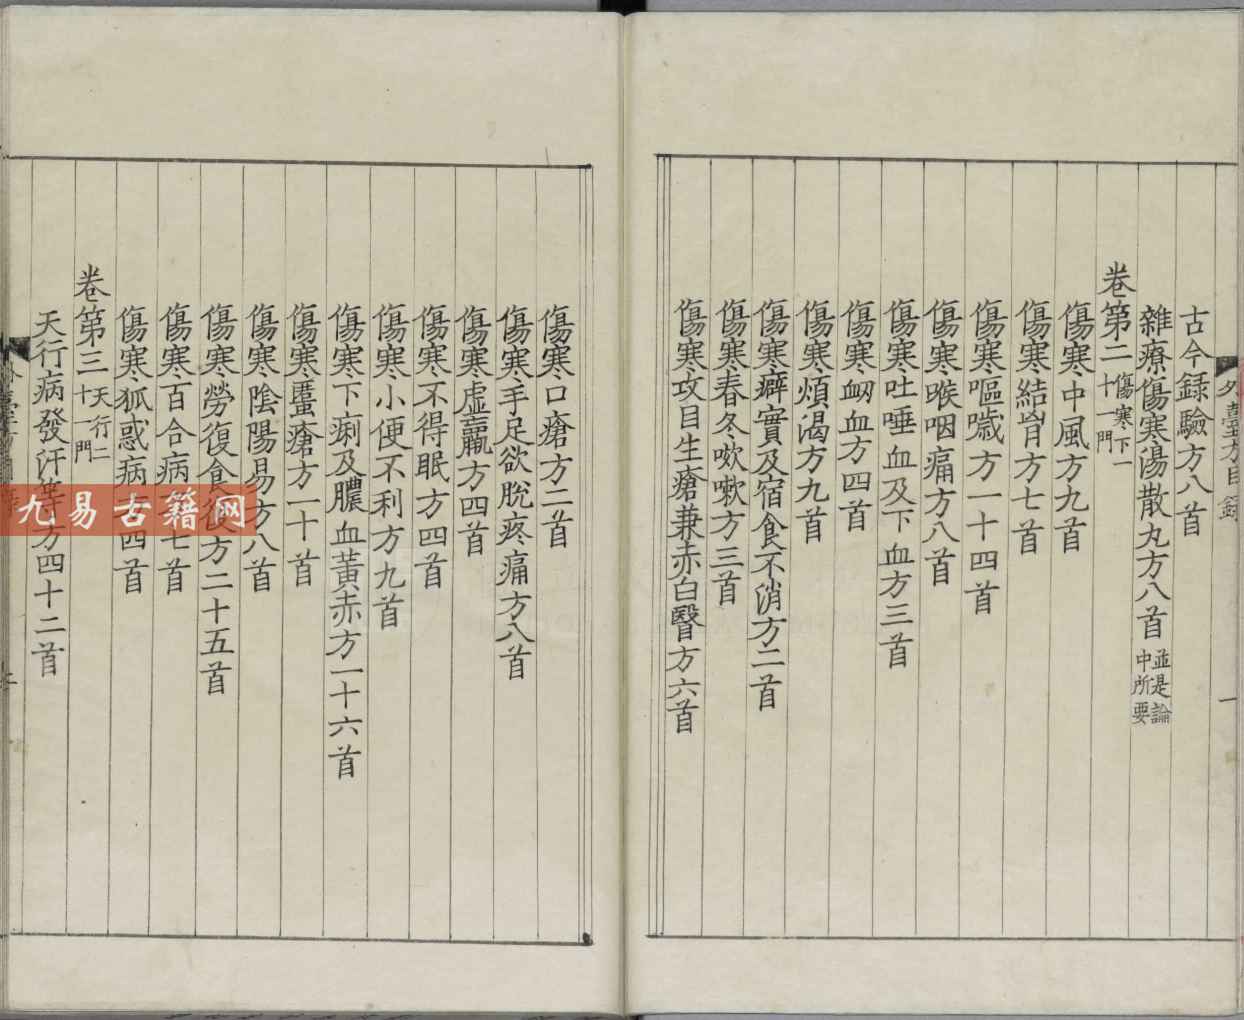 外臺方目錄
一
古今録驗方八首
雜療傷寒湯散丸方八首 並是論中所要
卷第二 傷寒下一十一門
傷寒中風方九首
傷寒結胷方七首
傷寒嘔噦方一十四首
傷寒喉咽痛方八首
傷寒吐唾血及下血方三首
傷寒衂血方四首
傷寒煩渴方九首
傷寒癖實及宿食不消方二首
傷寒春冬欬嗽方三首
傷寒攻目生瘡兼赤白瞖方六首
傷寒口瘡方二首
傷寒手足欲脫疼痛方八首
傷寒虛羸方四首
傷寒不得眠方四首
傷寒小便不利方九首
傷寒下痢及膿血黃赤方一十六首
傷寒䘌瘡方一十首
傷寒陰陽易方八首
傷寒勞復食復方二十五首
傷寒百合病七首
傷寒狐惑病四首
卷第三 天行二十一門
天行病發汗等方四十二首
九易古籍网